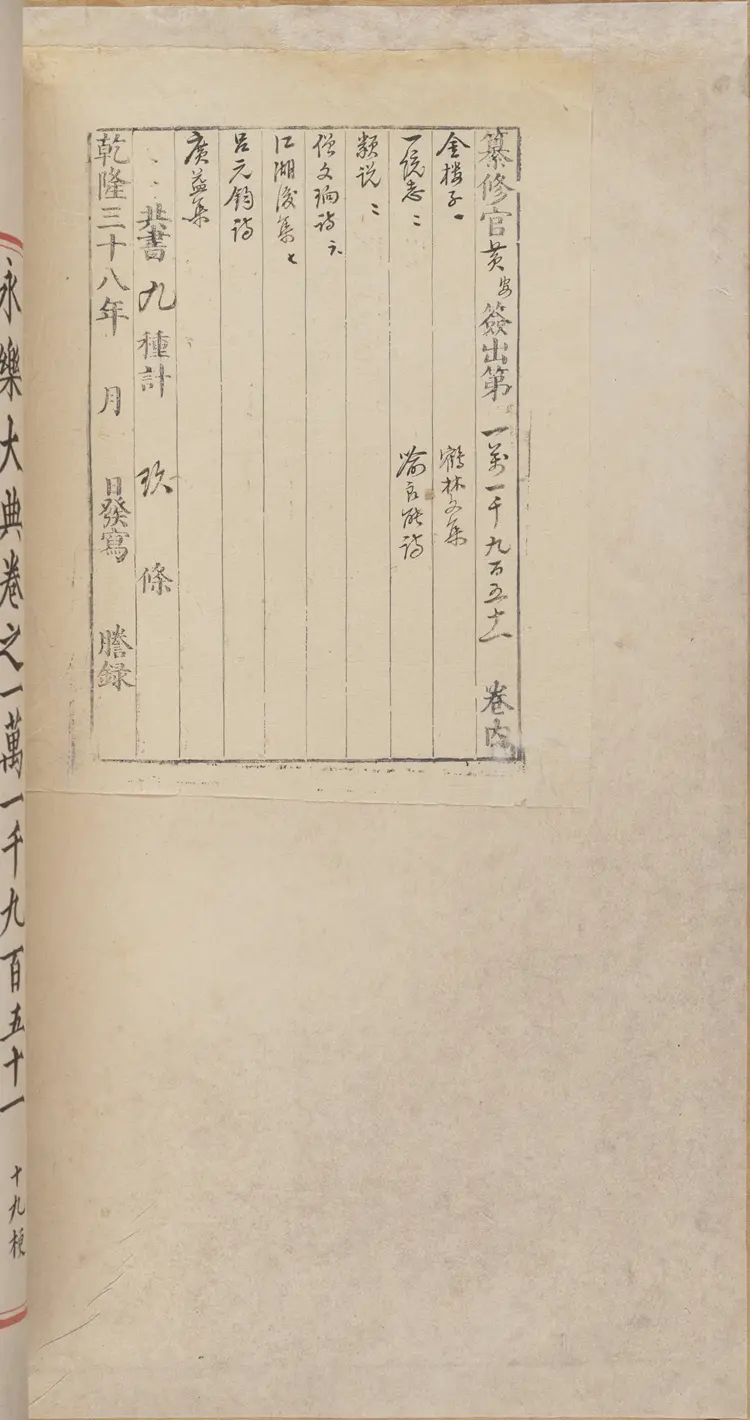 纂修官 黄 签出第 一萬一千九百五十一 卷内
金楼子一 鶴林文集
一 志二 喻良能詩
類说二
僧文珦詩六
江湖後集七
吕元鈞詩
廣益集
共書 九 種計 玖 條
乾隆三十八年 月 日發寫 謄録
永樂大典卷之一萬一千九百五十一 十九梗